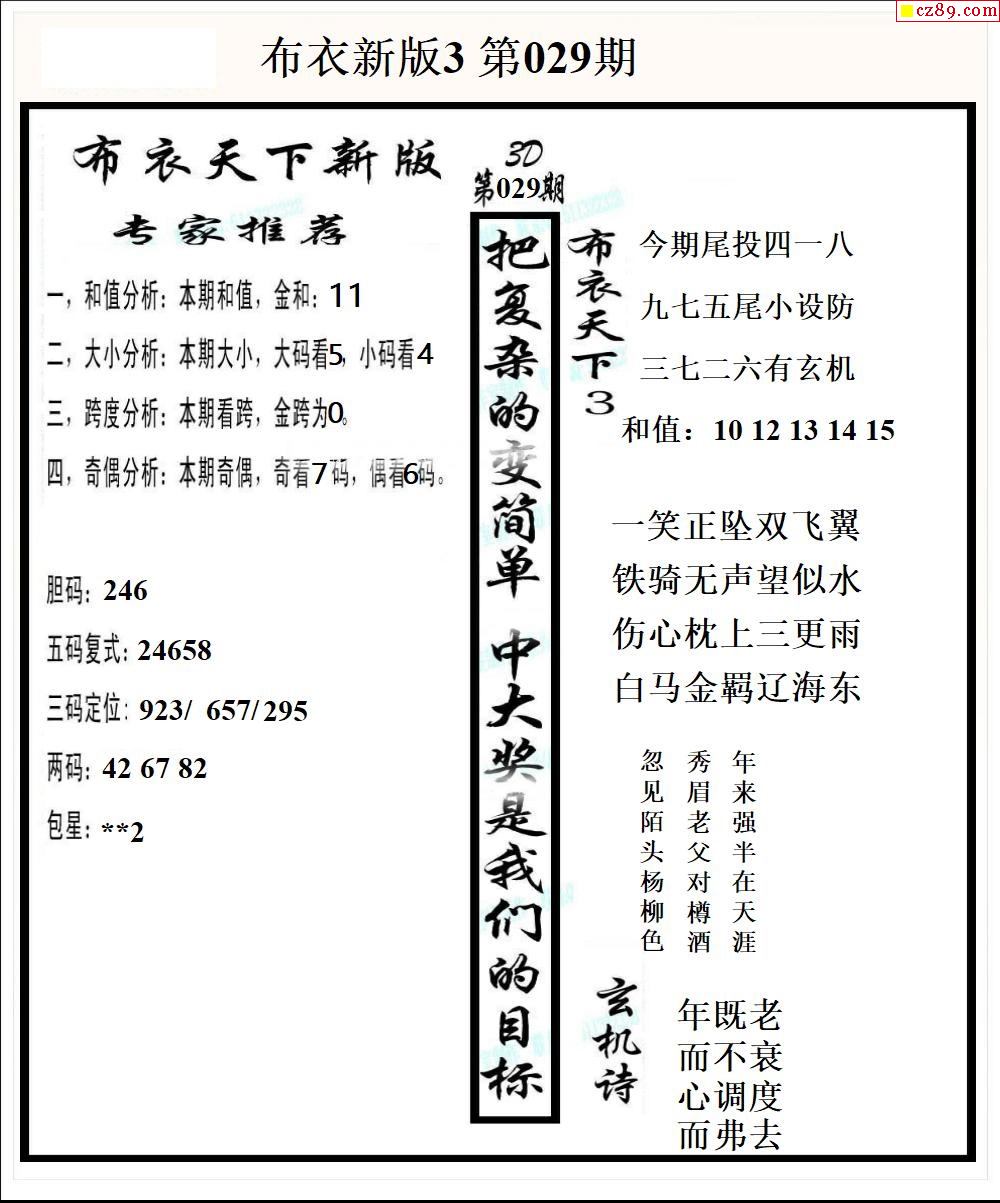 cz89.com
布衣新版3 第029期
布衣天下新版
专家推荐
一，和值分析：本期和值，金和：11
二，大小分析：本期大小，大码看5，小码看4
三，跨度分析：本期看跨，金跨为0。
四，奇偶分析：本期奇偶，奇看7码，偶看6码。
胆码：246
五码复式：24658
三码定位：923/ 657/295
两码：42 67 82
包星：**2
3D
第029期
把复杂的变简单 中大奖是我们的目标
布衣天下3
今期尾投四一八
九七五尾小设防
三七二六有玄机
和值：10 12 13 14 15
一笑正坠双飞翼
铁骑无声望似水
伤心枕上三更雨
白马金羁辽海东
年来强半在天涯
秀眉老父对樽酒
忽见陌头杨柳色
玄机诗
年既老
而不衰
心调度
而弗去